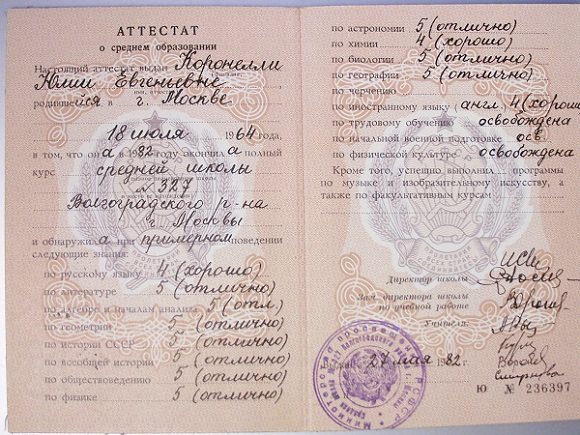 АТТЕСТАТ
о среднем образовании
Настоящий аттестат выдан Коронелли
Юлии Евгеньевне
родившейся в г. Москве
18 июля 1964 года,
в том, что она в 1982 году окончила полный
курс средней школы
№ 327
Волгоградского р-на
г. Москвы
и обнаружила при примерном поведении
следующие знания:
по русскому языку 4 (хорошо)
по литературе 5 (отлично)
по алгебре и началам анализа 5 (отл.)
по геометрии 5 (отлично)
по истории СССР 5 (отлично)
по всеобщей истории 5 (отлично)
по обществоведению 5 (отлично)
по физике 5 (отлично)
по астрономии 5 (отлично)
по химии 4 (хорошо)
по биологии 5 (отлично)
по географии 5 (отлично)
по черчению
по иностранному языку (англ. 4 (хорошо
по трудовому обучению освобождена
по начальной военной подготовке осв.
по физической культуре освобождена
Кроме того, успешно выполнил программы
по музыке и изобразительному искусству, а
также по факультативным курсам
Директор школы
Зам. директора школы
по учебной работе
Учителя:
27 мая 1982 г.
Ю № 236397